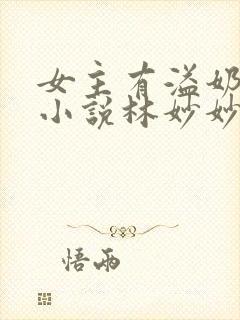 女主有溢奶
小说林妙妙
悟雨